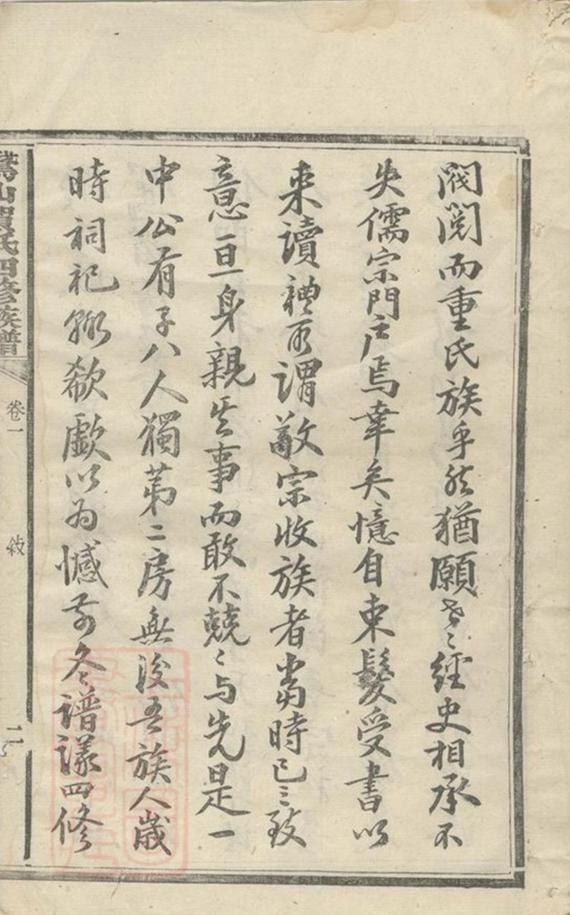 閥閱而重氏族乎然猶願世〻經史相承不
失儒宗門戶焉幸矣憶自束髮受書以
来讀禮所謂敬宗收族者當時已三致
意一旦身親其事而敢不兢〻与先是一
中公有子八人獨第二房無後吾族人歲
時祠祀輒欷歔以為憾前冬譜議四修
山賀氏四修族譜
卷一
敘
二